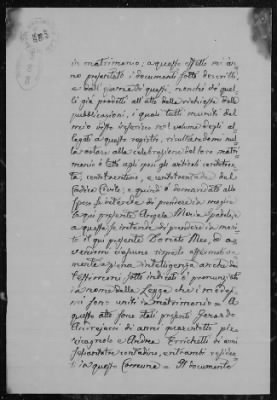 in matrimonio; a questo effetto mi àn
no presentato i documenti sotto descritti,
e dall'esame di questi, nonchè da quel
li già prodotti all'atto della richiesta delle
pubblicazioni, i quali tutti muniti del
mio visto inserisco nel volume degli al
legati a questo registro, risultandomi nul
la ostare alla celebrazione del loro matri
monio è letti agli sposi gli articoli centotrenta,
centotrentuno, e centotrentadue del
Codice Civile; e quindi ò domandato allo
sposo se intende di prendere in moglie
la qui presente Angela Maria
a questa se intende di prendere in mari
to il qui presente Donato Meo, ed a
vendomi ciascuno risposto affermativa
mente a piena intelligenza anche dei
testimoni sotto indicati ò pronunziato
in nome della Legge che i medesi
mi sono uniti in matrimonio = A
questo atto sono stati presenti Gerardo
di anni quarantotto piz
zicagnolo e Andrea Errichetti di anni
contadino, entrambi residen
ti in questo Comune = I documenti